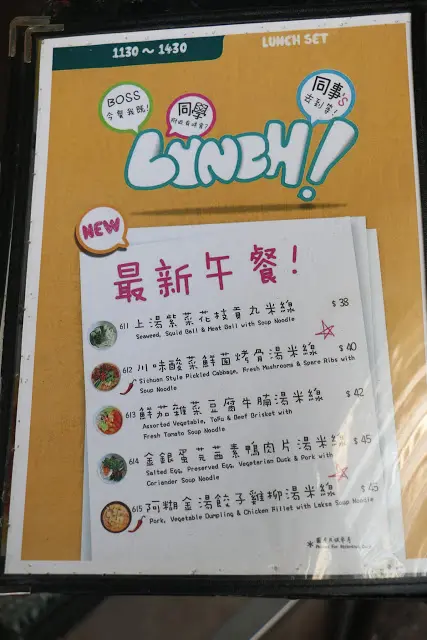 1130 ～ 1430
LUNCH SET
BOSS
今餐我既!
同學
附近有咩食?
同事's
去到實!
LUNCH!
NEW
最新午餐!
611 上湯紫菜花枝貢丸米線 $38
Seaweed, Squid Ball & Meat Ball with Soup Noodle
612 川味酸菜鮮菌烤骨湯米線 $40
Sichuan Style Pickled Cabbage, Fresh Mushrooms & Spare Ribs with
Soup Noodle
613 鮮茄雜菜豆腐牛腩湯米線 $42
Assorted Vegetable, ToFu & Beef Brisket with
Fresh Tomato Soup Noodle
614 金銀蛋芫茜素鴨肉片湯米線 $45
Salted Egg, Preserved Egg, Vegetarian Duck & Pork with
Coriander Soup Noodle
615 阿糊金湯餃子雞柳湯米線 $45
Pork, Vegetable Dumpling & Chicken Fillet with Laksa Soup Noodle